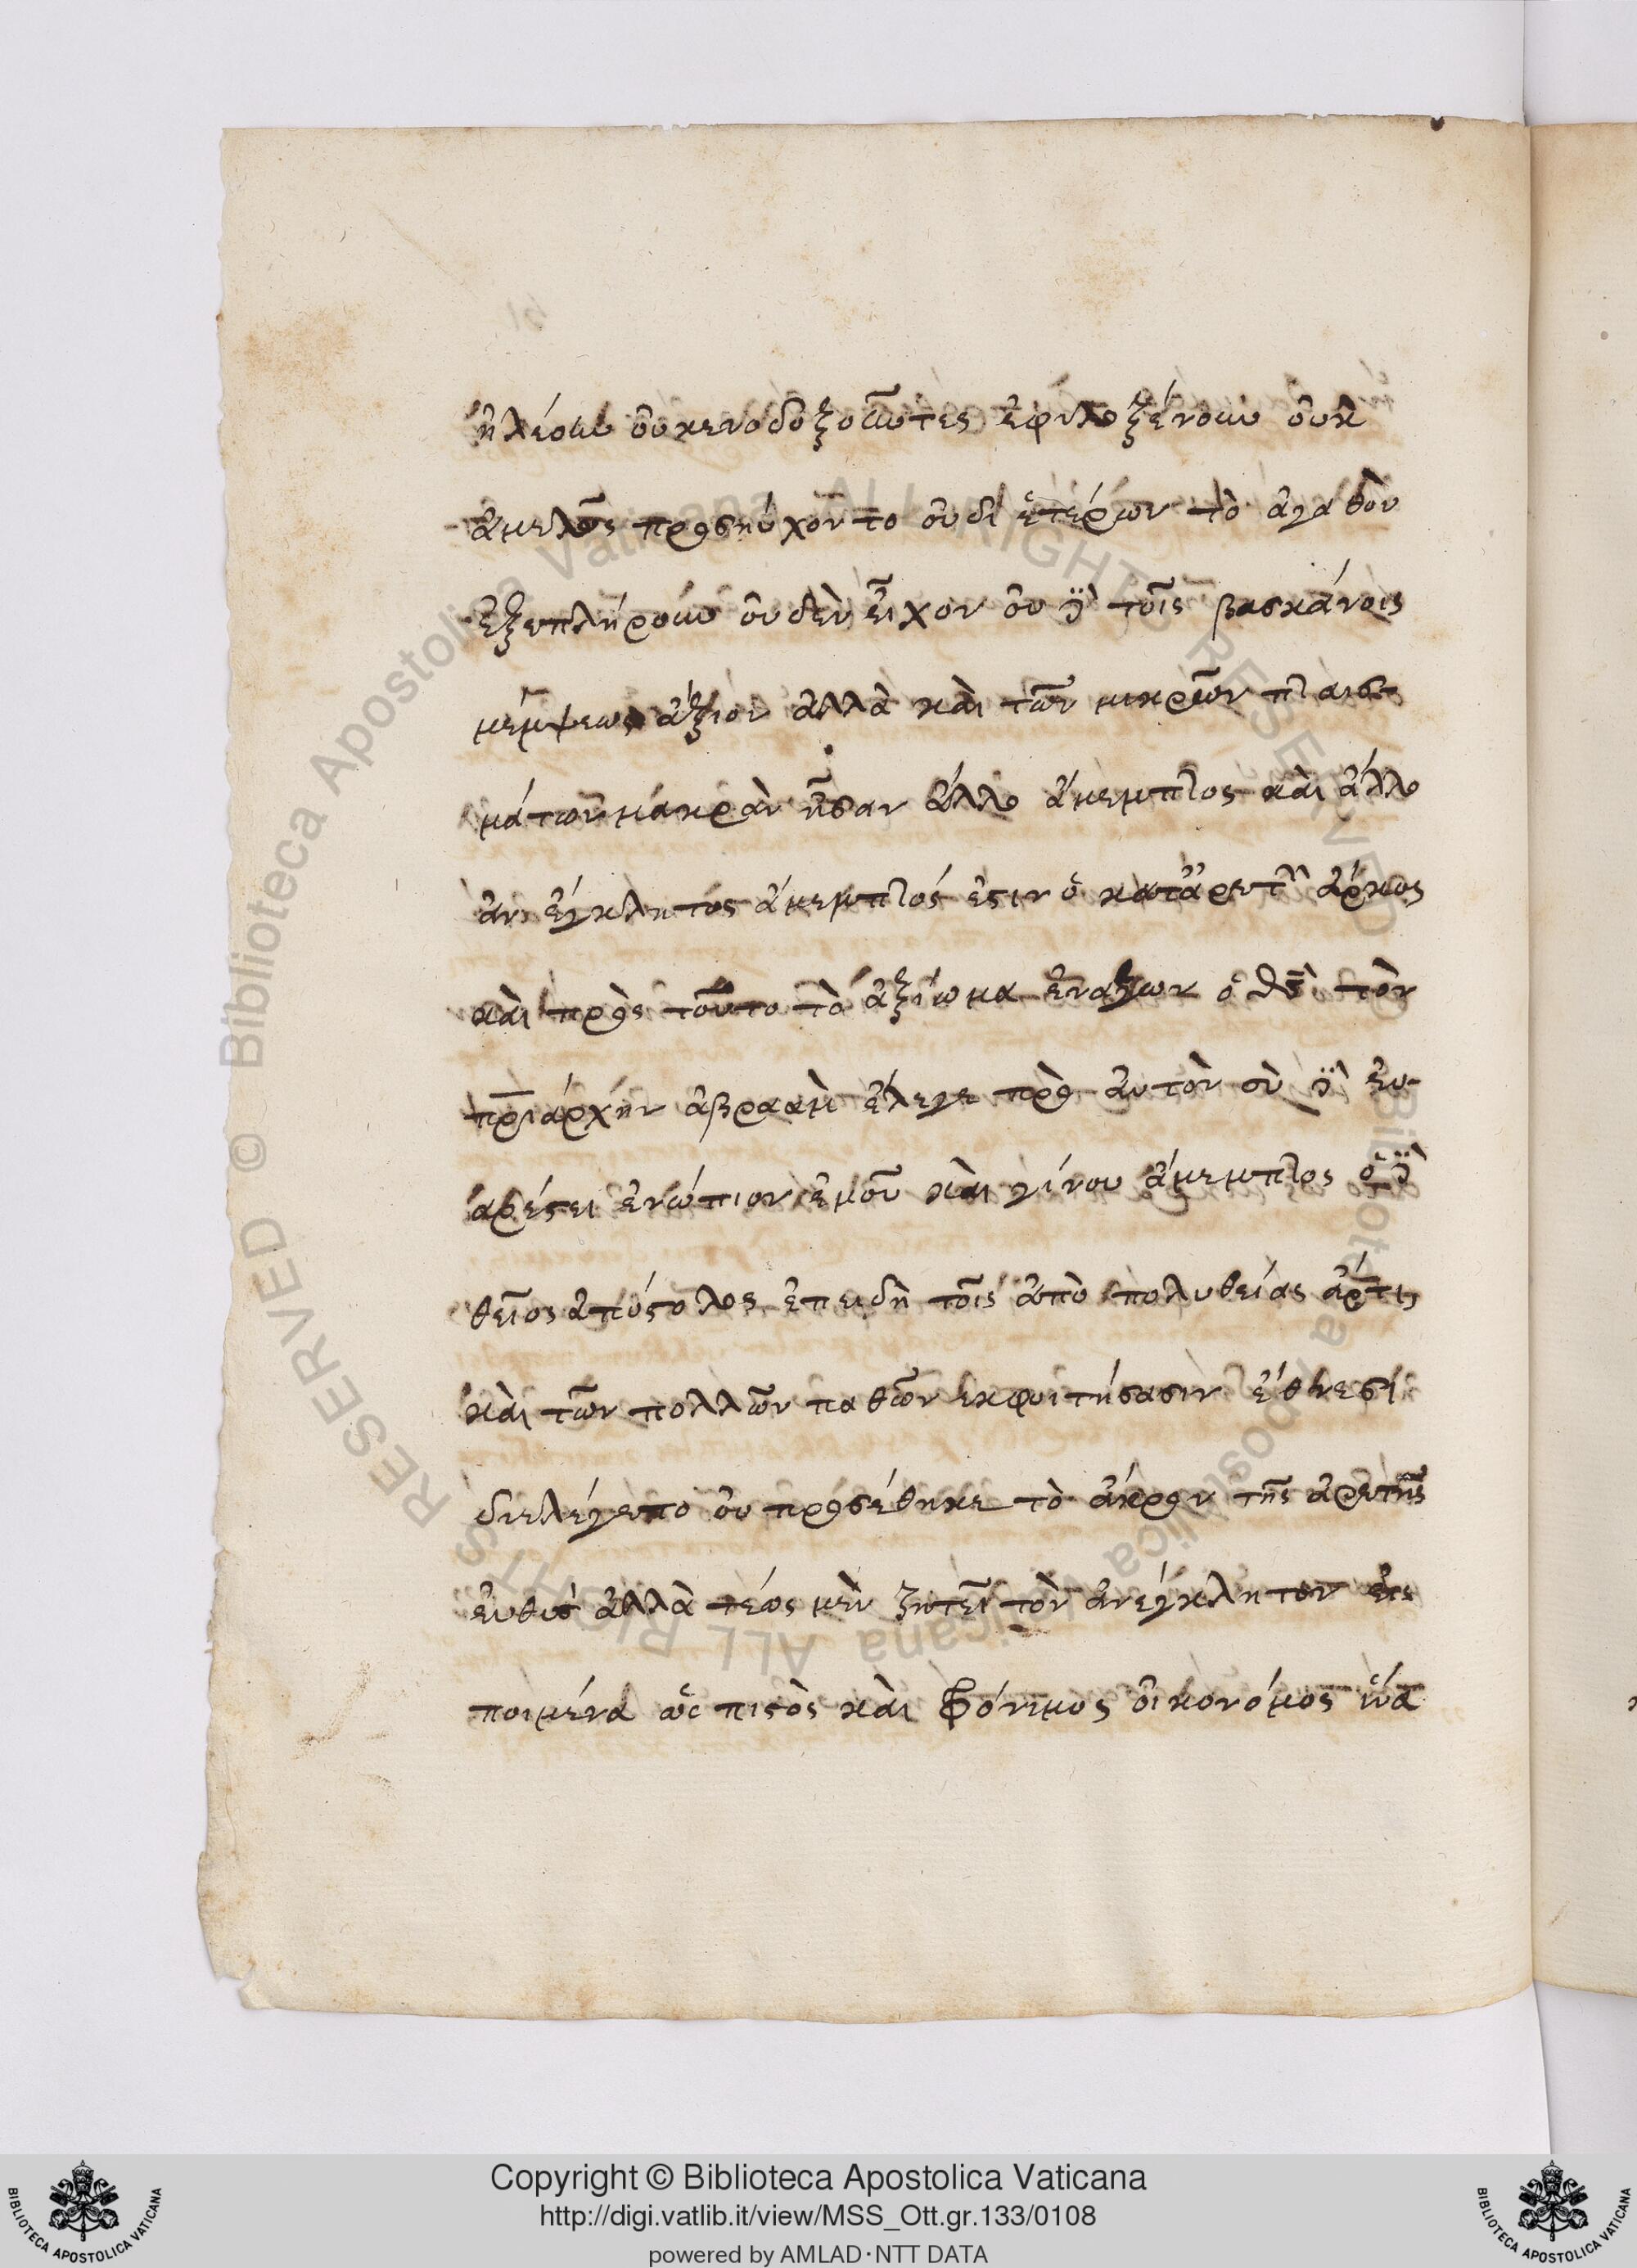 ἠλέουν οὐ κενοδοξοῦντες ἐφιλοξένουν οὐκ
ἀμελῶς προσηύχοντο οὐ δι ἑτέρων τὸ ἀγαθὸν
ἐξεπλήρουν οὐδὲν εἶχον οὐ δὲ τοῖς βασκάνοις
μέμψεως ἄξιον ἀλλὰ καὶ τῶν μικρῶν πταισ
μάτων μακρὰν ἦσαν ἄλλο ἄμεμπτος καὶ ἄλλο
ἀνέγκλητος ἄμεμπτός ἐστιν ὁ κατὰ ἀρετὴν ἄρτιος
καὶ πρὸς τοῦτο τὸ ἀξίωμα ἐνάγων ὁ θς τὸν
πριάρχην ἀβραὰμ ἔλεγε πρὸς αὐτὸν σὺ δὲ εὐ
αρέστει ἐνώπιον ἐμοῦ καὶ γίνου ἄμεμπτος ὁ δὲ
θεῖος ἀπόστολος ἐπειδὴ τοῖς ἀπὸ πολυθείας ἄρτι
καὶ τῶν πολλῶν παθῶν ἐκφοιτήσασιν ἔθνεσι
διελέγετο οὐ προσέθηκε τὸ ἄκρον τῆς ἀρετῆς
εὐθὺς ἀλλὰ τέως μὲν ζητεῖ τὸν ἀνέγκλητον εἰς
ποιμένα ὡς πιστὸς καὶ φρόνιμος οἰκονόμος ἵνα
Copyright © Biblioteca Apostolica Vaticana
http://digi.vatlib.it/view/MSS_Ott.gr.133/0108
powered by AMLAD·NTT DATA
BIBLIOTECA APOSTOLICA VATICANA
BIBLIOTECA APOSTOLICA VATICANA
© Biblioteca Apostolica Vaticana ALL RIGHTS RESERVED
Biblioteca Apostolica Vaticana ALL RIGHTS RESERVED